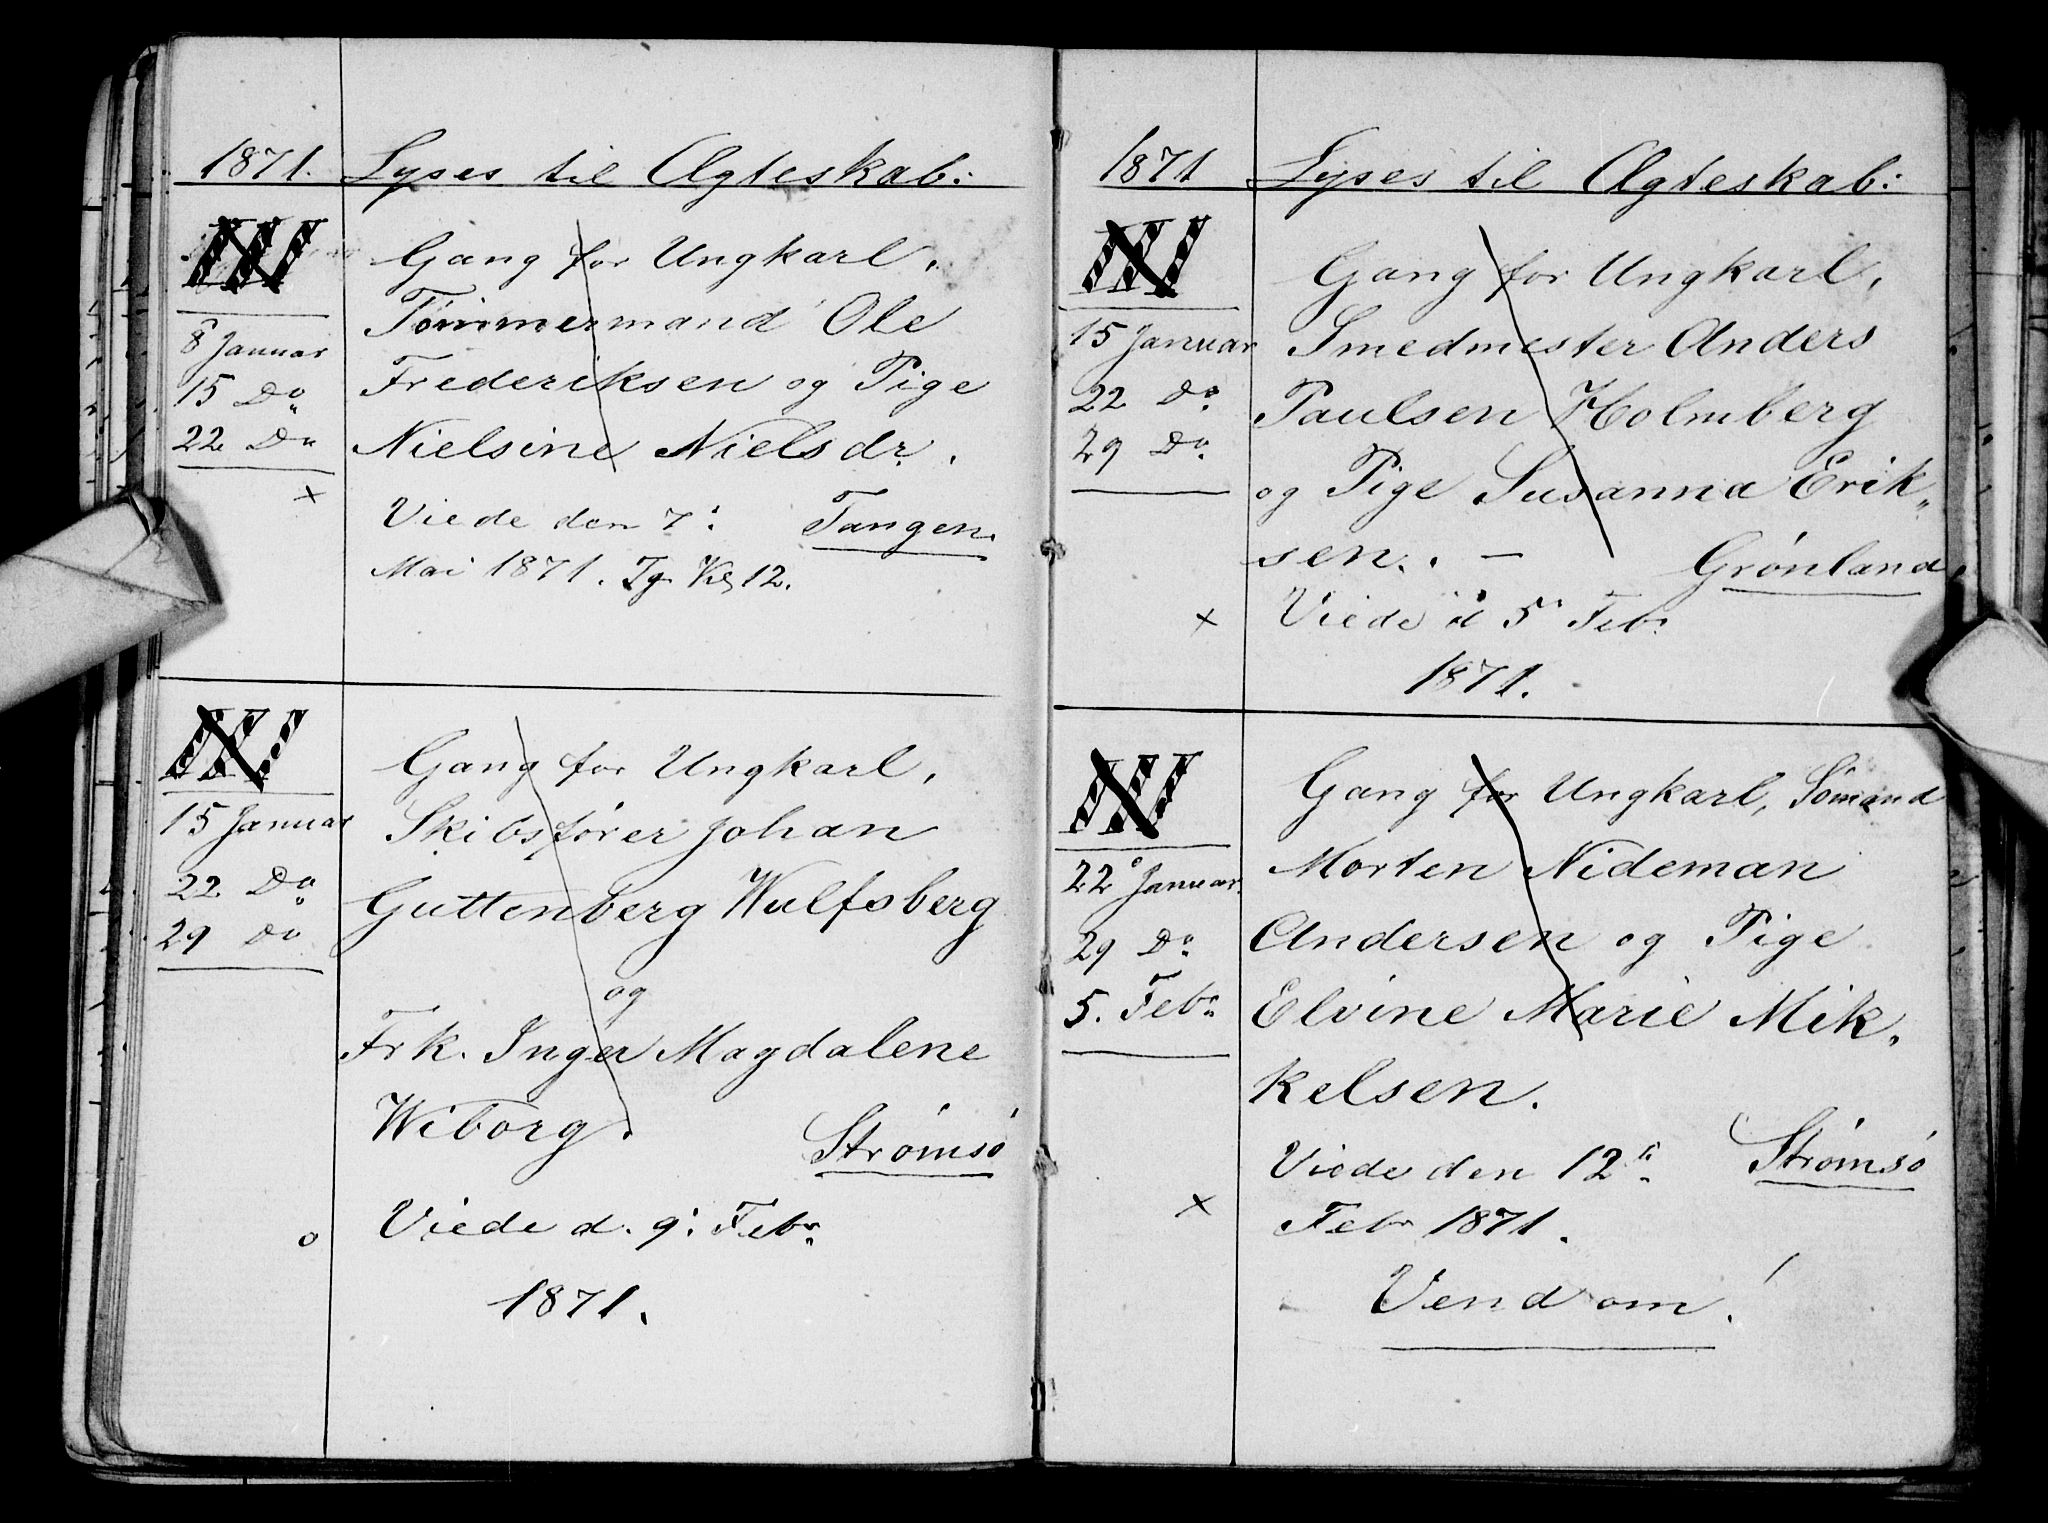 1871. Lyses til Ægteskab:
III
Gang for Ungkarl,
Tømmermand Ole
Frederiksen og Pige
Nielsine Nielsdr.
8 Januar
15 Do
22 Do
x
Viede den 7:
Tangen.
Mai 1871. Kl 12.
III
Gang for Ungkarl,
Skibsfører Johan
Guttenberg Wulfsberg
og
Frk. Inger Magdalene
Wiborg.
15 Januar
22. Do
29 Do
Strømsø
o
Viede d. 9: Febr
1871.
1871 Lyses til Ægteskab:
III
Gang for Ungkarl,
Smedmester Anders
Paulsen Holmberg
og Pige Susanna Erik-
sen. . —
15 Januar
22 Do
29 Do
Grønland
x
Viede d 5 Febr
1871.
III
Gang for Ungkarl, Sømand
Morten Nideman
Andersen og Pige
Elvine Marie Mik-
kelsen.
22 Januar.
29 Do
5. Febr
Strømsø
Viede den 12
x
Febr 1871.
Vend om!